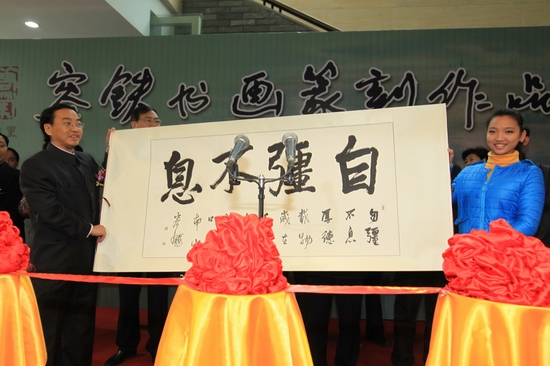 容铁书画篆刻作品
自彊不息
自彊
不息
厚德
載物
歲在